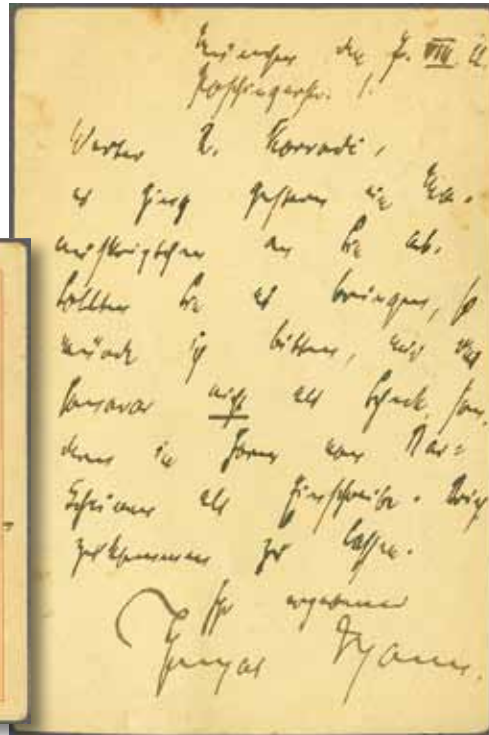 München den 7. VIII. 22
Poschingerstr. 1.
Werter D. Korrodi,
es ging gestern ein Ma-
nuskriptchen an Sie ab.
Sollten Sie es bringen, so
würde ich bitten, mir das
Honorar nicht als Scheck, son-
dern in Form von Bar-
Scheinen als Einschreibe-Brief
zukommen zu lassen.
Ihr ergebener
Thomas Mann.